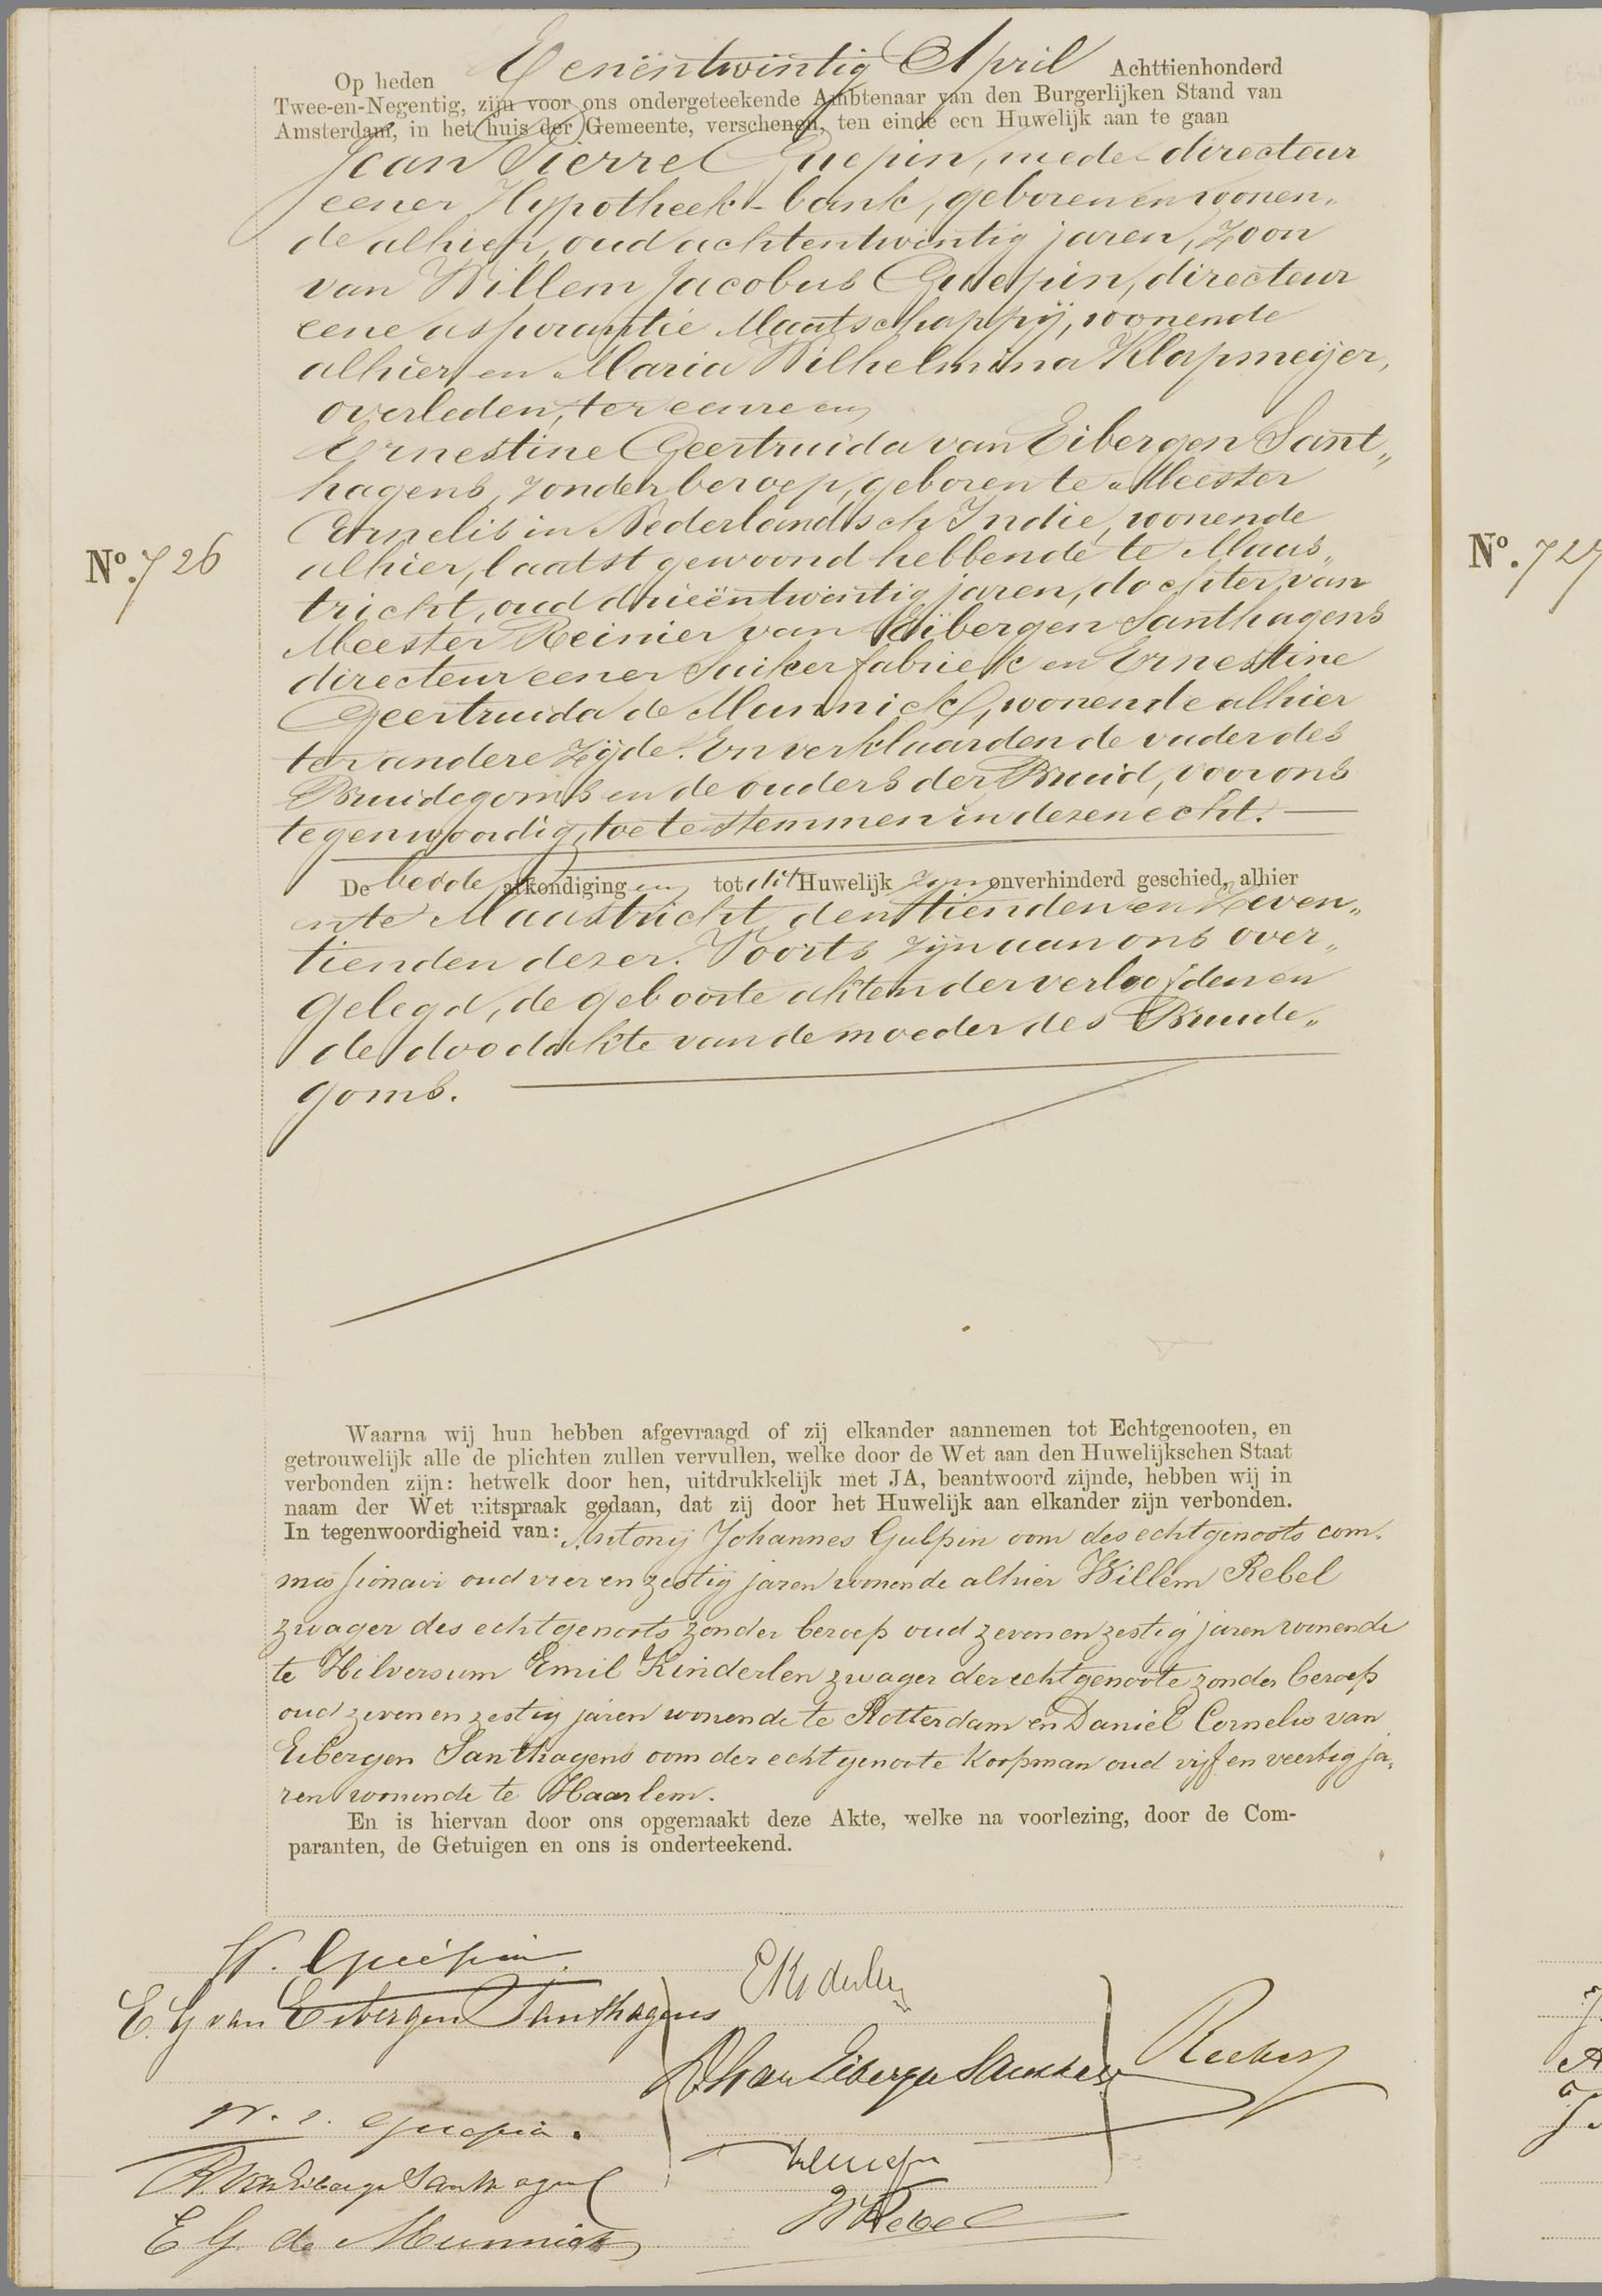 Op heden Eenëntwintig April Achttienhonderd
Twee-en-Negentig, zijn voor ons ondergeteekende Ambtenaar van den Burgerlijken Stand van
Amsterdam, in het huis der Gemeente, verschenen, ten einde een Huwelijk aan te gaan
Jean Pierre Guepin, mede-directeur
eener Hypotheek-bank, geboren en woonen„
de alhier, oud achtentwintig jaren, zoon
van Willem Jacobus Guepin, directeur
eene assurantie Maatschappij, wonende
alhier en Maria Wilhelmina Klapmeijer,
overleden, ter eenre en
Ernestine Geertruida van Eibergen Sant„
hagens, zonder beroep, geboren te Meester
Cornelis in Nederlandsch Indie, wonende
alhier, laatst gewoond hebbende te Maas„
tricht, oud drieëntwintig jaren, dochter van
Meester Reinier van Eibergen Santhagens
directeur eener Suikerfabriek en Ernestine
Geertruida de Munnick, wonende alhier
ter andere zijde. En verklaarden de vader des
Bruidegoms en de ouders der Bruid, voor ons
tegenwoordig, toe te stemmen in dezen echt.
No. 726
No. 727
De beide afkondigingen tot dit Huwelijk zijn onverhinderd geschied, alhier
en te Maastricht, den tienden en Zeven„
tienden dezer. Voorts zijn aan ons over„
gelegd, de geboorte akten der verloofden en
de doodakte van de moeder des Bruide„
goms.
Waarna wij hun hebben afgevraagd of zij elkander aannemen tot Echtgenooten, en
getrouwelijk alle de plichten zullen vervullen, welke door de Wet aan den Huwelijkschen Staat
verbonden zijn: hetwelk door hen, uitdrukkelijk met JA, beantwoord zijnde, hebben wij in
naam der Wet uitspraak gedaan, dat zij door het Huwelijk aan elkander zijn verbonden.
In tegenwoordigheid van: Antonij Johannes Guépin oom des echtgenoots com„
missionair oud vier en zestig jaren wonende alhier Willem Rebel
zwager des echtgenoots zonder beroep oud zeven en zestig jaren wonende
te Hilversum Emil Kinderlen zwager der echtgenoote zonder beroep
oud zeven en zestig jaren wonende te Rotterdam en Daniel Cornelis van
Eibergen Santhagens oom der echtgenoote koopman oud vijf en veertig ja„
ren wonende te Haarlem.
En is hiervan door ons opgemaakt deze Akte, welke na voorlezing, door de Com-
paranten, de Getuigen en ons is onderteekend.
Guépin
E. G van Eibergen Santhagens
W. J. Guepin.
R. van Eibergen Santhagens
E G de Munnick
EKinderlen
van Eibergen Santhagens
W Rebel